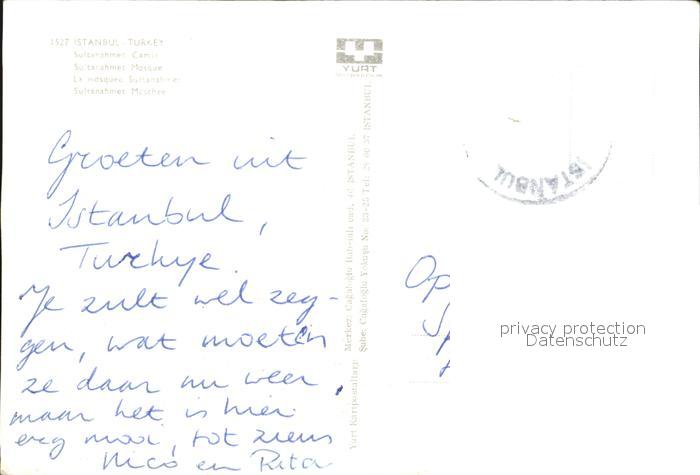 1527 ISTANBUL - TURKEY
Sultanahmet Camii
Sultanahmet Mosque
La mosquée Sultanahmet
Sultanahmet Moschee
YURT
ISTANBUL
Groeten uit
Istanbul,
Turkye.
Je zult wel zeg-
gen, wat moeten
ze daar nu weer,
maar het is hier
erg mooi, tot ziens
Nico en Rita
Op
Sp
Yurt Kartpostalları
Merkez: Cağaloğlu
Şube: Cağaloğlu Yokuşu No: 23-25 Tel: 26 00 37 ISTANBUL
privacy protection
Datenschutz